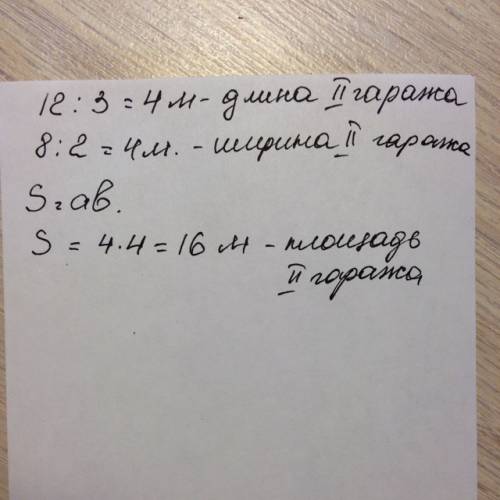 12 : 3 = 4 м - длина II гаража
8 : 2 = 4 м. - ширина II гаража
S = ав.
S = 4 · 4 = 16 м - площадь
II гаража